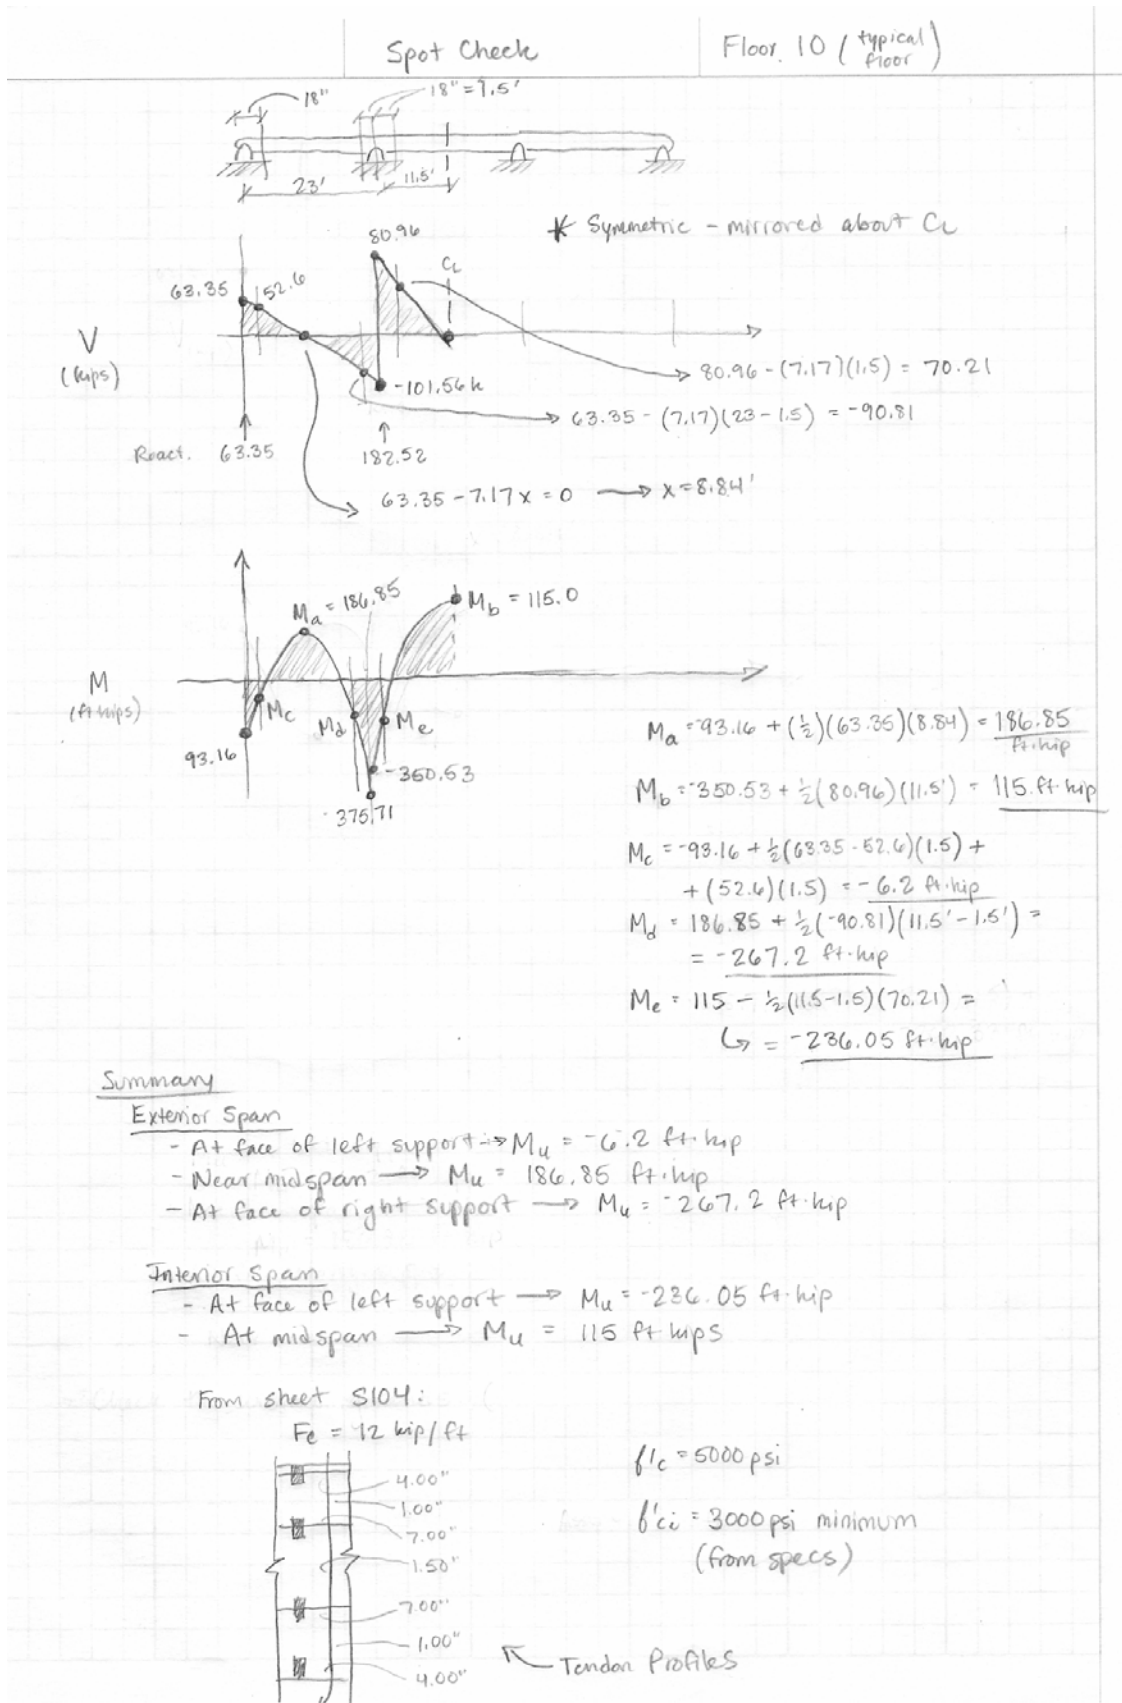 Spot Check
Floor 10 (typical floor)
18"
18" = 1.5'
23'
11.5'
* Symmetric - mirrored about CL
80.96
CL
63.35
52.6
V
(kips)
-101.56k
80.96 - (7.17)(1.5) = 70.21
63.35 - (7.17)(23-1.5) = -90.81
React. 63.35
182.52
63.35 - 7.17x = 0 → x = 8.84'
Ma = 186.85
Mb = 115.0
M
(ft·kips)
Mc
Md
Me
93.16
-350.53
-375.71
Ma = -93.16 + (1/2)(63.35)(8.84) = 186.85
ft·kip
Mb = -350.53 + 1/2(80.96)(11.5') = 115 ft·kip
Mc = -93.16 + 1/2(63.35-52.6)(1.5) +
+ (52.6)(1.5) = -6.2 ft·kip
Md = 186.85 + 1/2(-90.81)(11.5'-1.5') =
= -267.2 ft·kip
Me = 115 - 1/2(11.5-1.5)(70.21) =
↳ = -236.05 ft·kip
Summary
Exterior Span
- At face of left support → Mu = -6.2 ft·kip
- Near midspan → Mu = 186.85 ft·kip
- At face of right support → Mu = -267.2 ft·kip
Interior Span
- At face of left support → Mu = -236.05 ft·kip
- At midspan → Mu = 115 ft·kips
From sheet S104:
Fe = 12 kip/ft
f'c = 5000 psi
4.00"
1.00"
f'ci = 3000 psi minimum
7.00"
(from specs)
1.50"
7.00"
1.00"
Tendon Profiles
4.00"